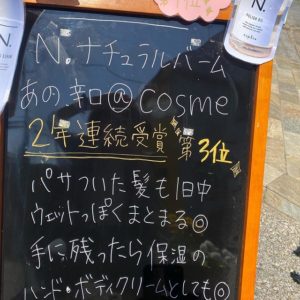 1位
N.
N. ナチュラルバーム
あの辛口@cosme
2年連続受賞 第3位
パサついた髪も1日中
ウェットっぽくまとまる◎
手に残ったら保湿の
ハンド・ボディクリームとしても◎